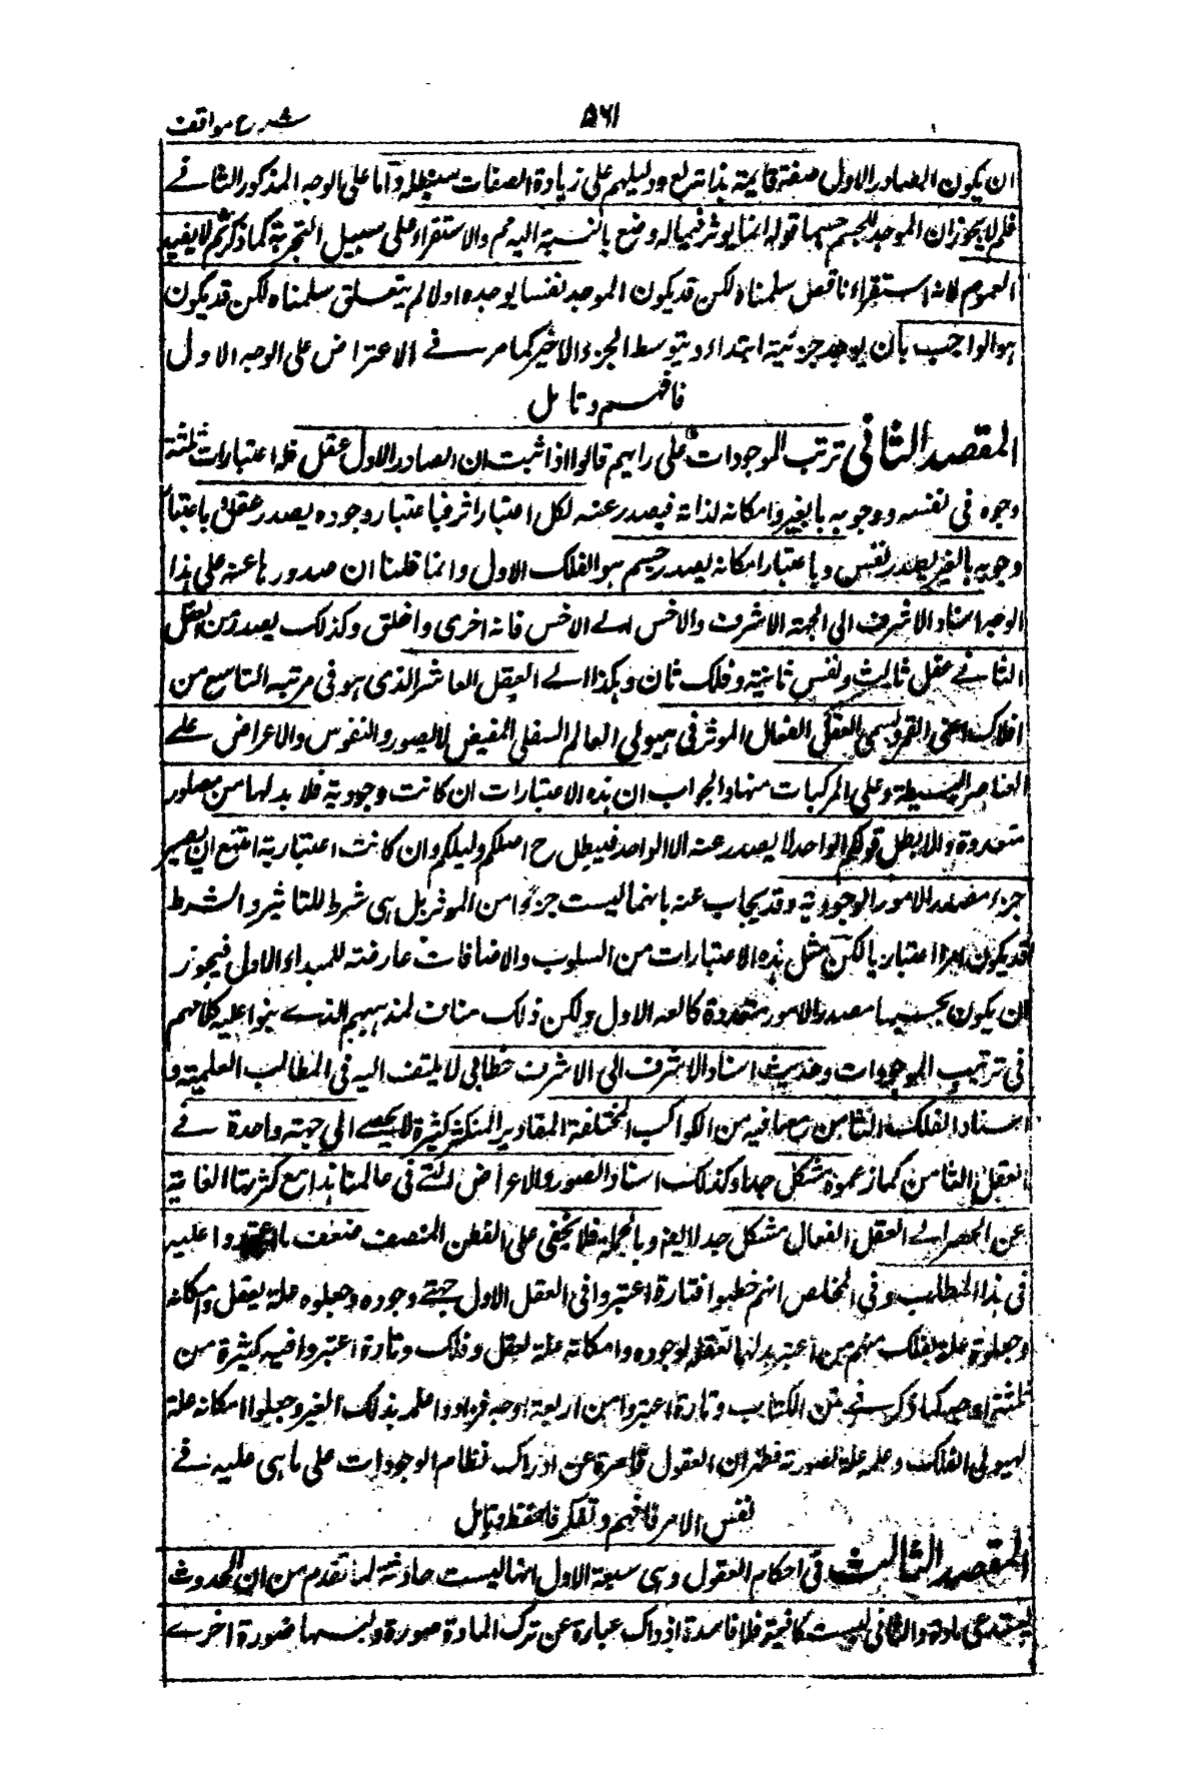 شرح مواقف
۵۶۱
ان یکون الصادر الاول صفة قایمة بذاته تع و دلیلهم علی زیادة الصفات سنبطله و اما علی الوجه المذکور الثانے
فلم لا یجوز ان الموجد للجسم جسما قوله انما یوثر فیما له وضع بالنسبة الیه ثم والاستقراء علی سبیل التجربة کما ذکرتم لا یفید
العموم لانه استقراء ناقص سلمناه لکن قد یکون الموجد نفسا یوجده اولا ثم یتعلق سلمناه لکن قد یکون
هو الواجب بان یوجد جزئیه ابتداء و بتوسط الجزء الاخیر کما مر فے الاعتراض علی الوجه الاول
فافهم وتامل
المقصد الثانی ترتب الموجودات علی رایهم قالوا اذا ثبت ان الصادر الاول عقل فله اعتبارات ثلثة
وجوده فی نفسه و وجوبه بالغیر و امکانه لذاته فیصدر عنه لکل اعتبار اثر فباعتبار وجوده یصدر عقل باعتبار
وجوبه بالغیر یصدر نفس و باعتبار امکانه یصدر جسم هو الفلک الاول وانما قلنا ان صدورها عنه علی هذا
الوجه اسناد الاشرف الی الجهة الاشرف والاخس الے الاخس فانه احری واخلق وکذلک یصدر من العقل
الثانے عقل ثالث و نفس ثانیة و فلک ثان و هکذا الے العقل العاشر الذی هو فی مرتبه التاسع من
افلاک اعنی القمر ویسمی العقل الفعال الموثر فی هیولی العالم السفلی المفیض للصور والنفوس والاعراض علے
العناصر البسیطة وعلی المرکبات منها والجواب ان هذه الاعتبارات ان کانت وجودیة فلا بد لها من مصادر
متعددة والا بطل قولکم الواحد لا یصدر عنه الا الواحد فیبطل ح اصلکم ودلیلکم وان کانت اعتباریة امتنع ان یصیر
جزء مصدر الامور الوجودیة وقد یجاب عنه بانها لیست جزءا من الموثر بل هی شرط للتاثیر والشرط
قد یکون امرا اعتباریا لکن مثل هذه الاعتبارات من السلوب والاضافات عارضة للمبداء الاول فیجوز
ان یکون بحسبها مصدر الامور متعددة کالمعلول الاول ولکن ذلک مناف لمذهبهم الذے بنوا علیه کلامهم
فی ترتیب الموجودات وحدیث اسناد الاشرف الی الاشرف خطابی لا یلتفت الیه فی المطالب العلمیة و
اسناد الفلک الثامن مع ما فیه من الکواکب المختلفة المقادیر المتکثرة کثیرة لا یحصے الی جهته واحدة فے
العقل الثامن کما زعموه مشکل جدا وکذلک اسناد الصور والاعراض التے فی عالمنا هذا مع کثرتها الفایتة
عن الحصر الے العقل الفعال مشکل جدا لایضا وبالجمله فلا یخفی علی الفطن المنصف ضعف ما اعتمدوا علیه
فی هذا المطالب وفی الملخص انهم خطبوا فتارة اعتبروا فی العقل الاول جهتے وجوده وجعلوه علة لعقل وامکانه
وجعلوه علة لفلک منهم من اعتبر بدلهما تعقله لوجوده وامکانه علة لعقل وفلک وتارة اعتبروا فیه کثیرة من
ثلثة اوجه کما ذکر فے متن الکتاب وتارة اعتبروا من اربعة اوجه فزادوا علمه بذلک الغیر وجعلوا امکانه علة
لهیولی الفلک وعلمه علة لصورته فظهر ان العقول قاصرة عن ادراک نظام الوجودات علی ما هی علیه فے
نفس الامر فافهم وتفکر فاحفظ وتامل
المقصد الثالث فی احکام العقول وهی سبعة الاول انها لیست حادثة لما تقدم من ان الحدوث
یستدعی مادة والثانی لیست کاینة فلا فاسدة اذ ذاک عبارة عن ترک المادة صورة ولبسها صورة اخرے